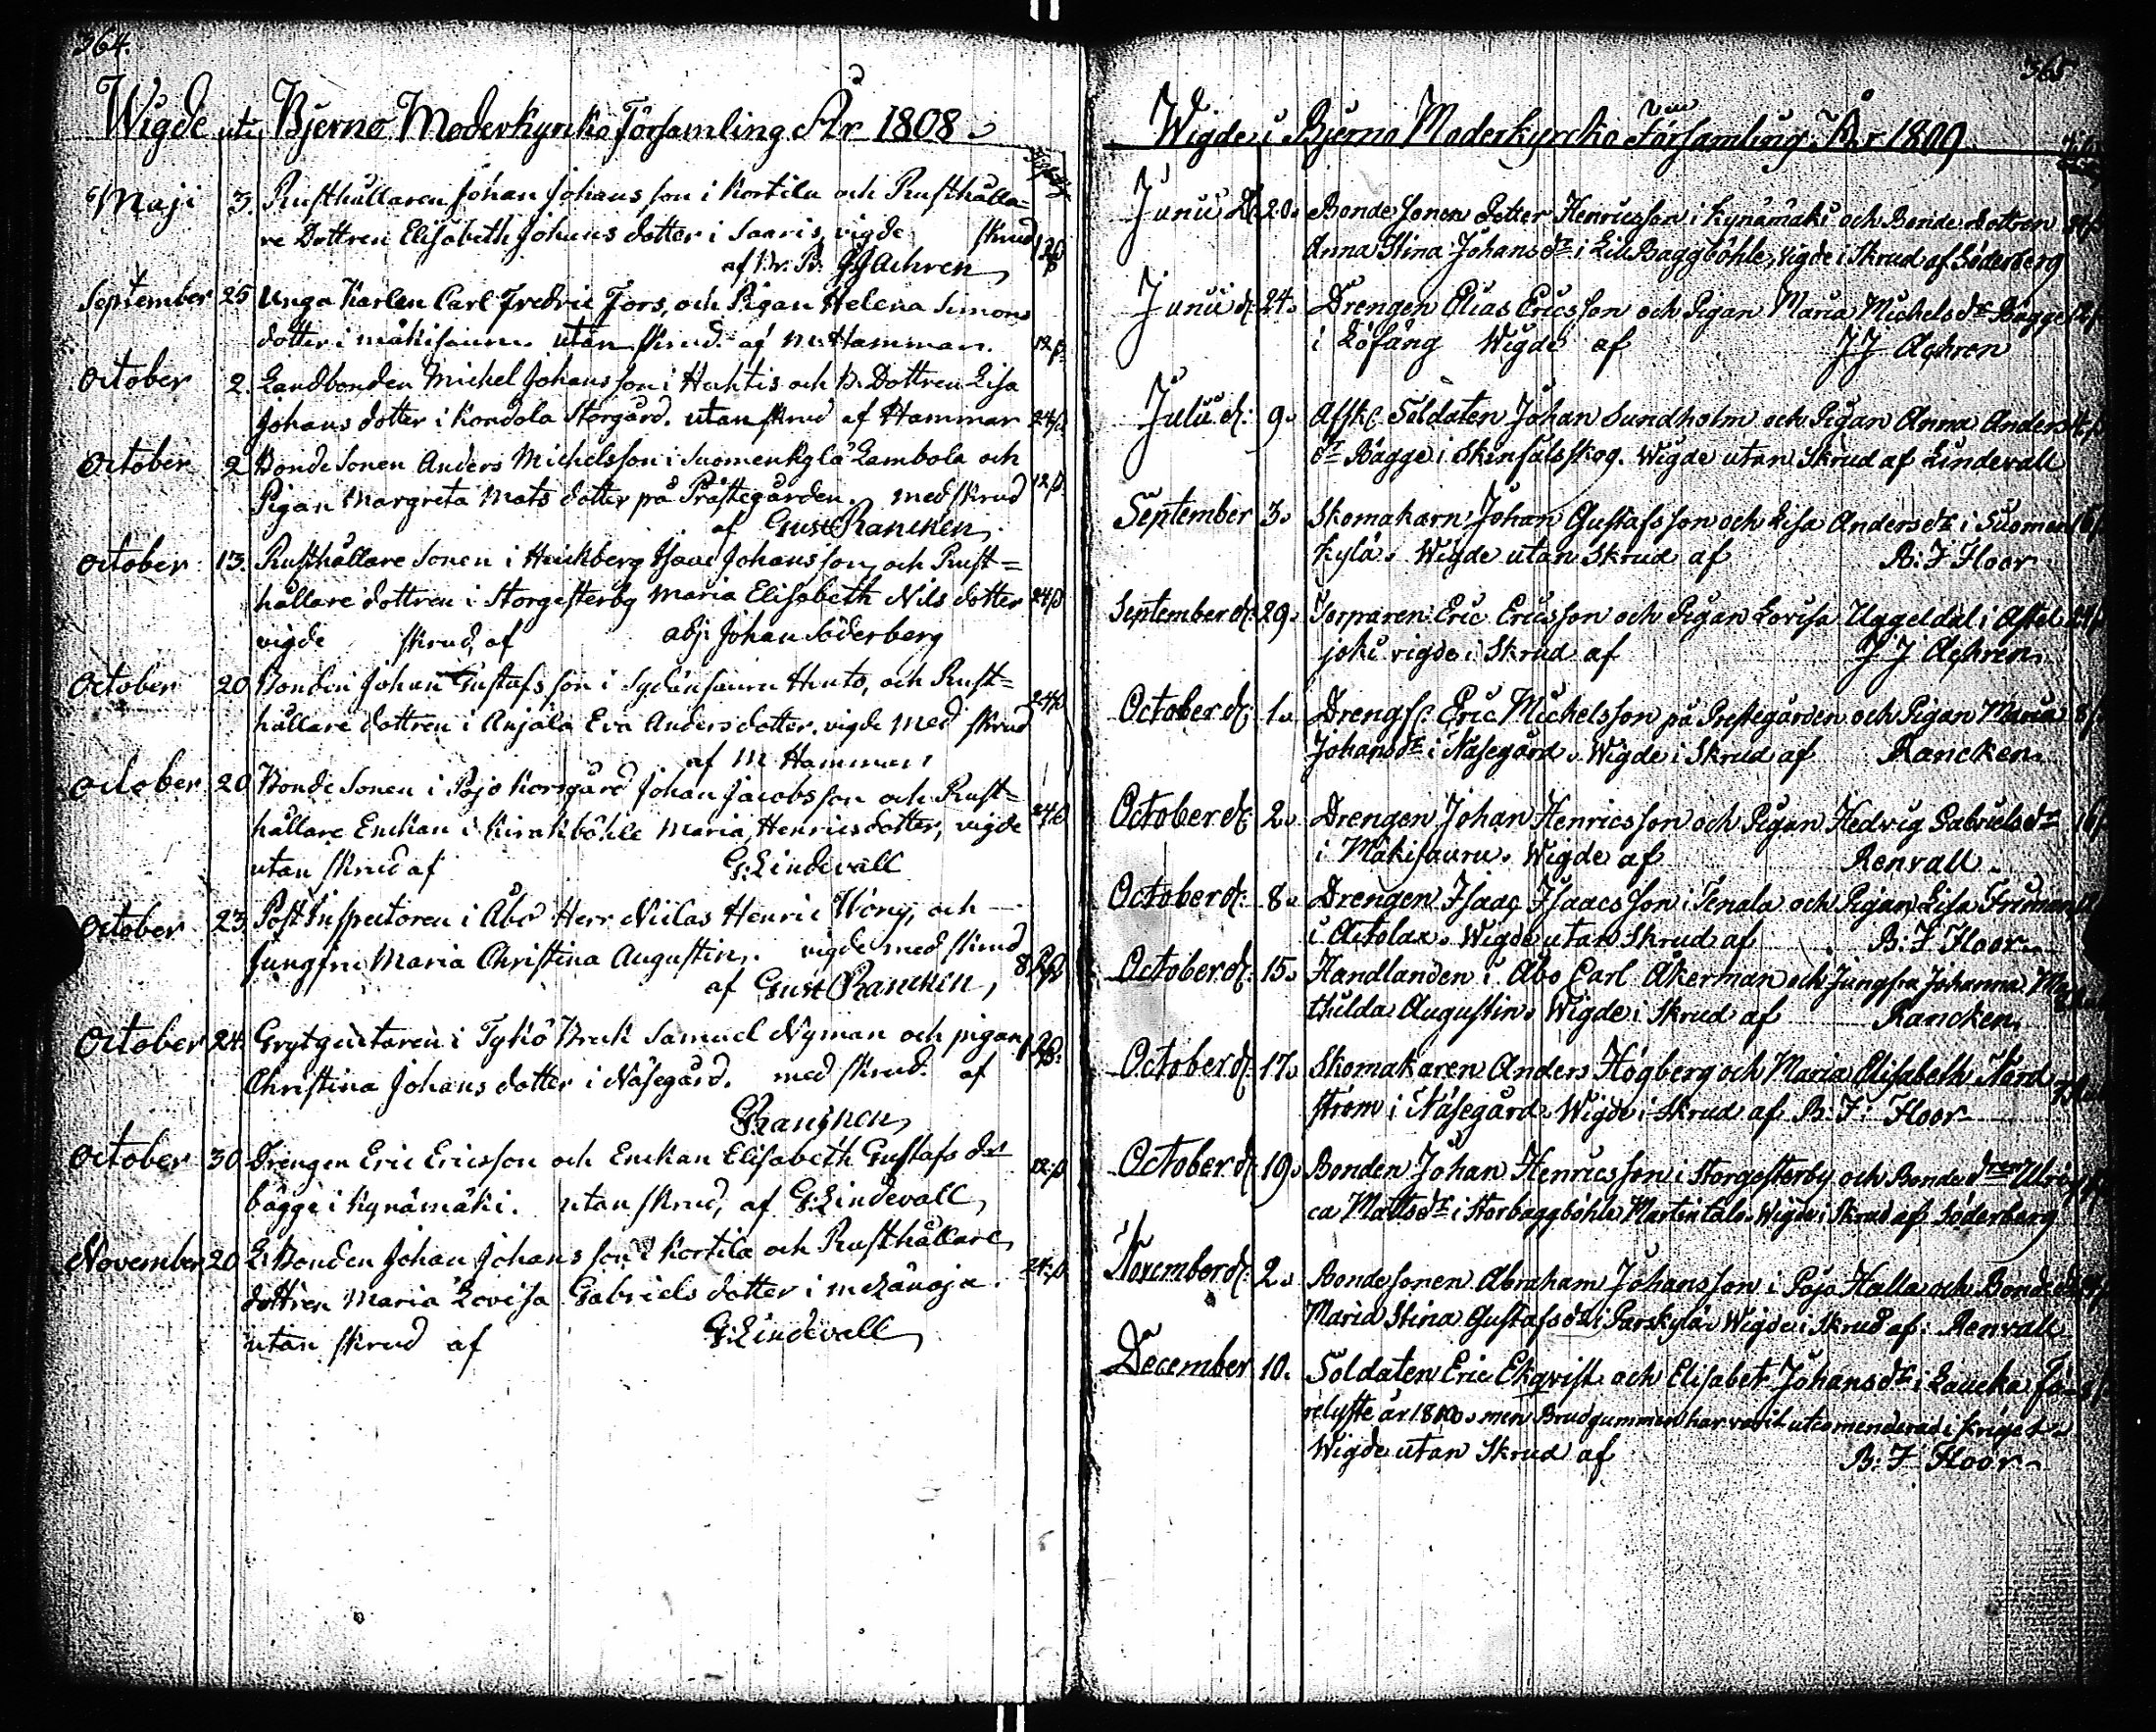 364.
Wigde uti Bjerno Moderkyrcko Församling År 1808
Maji 3. Rusthållaren Johan Johansson i Kortila och Rusthålla=
re Dottren Elisabeth Johans dotter i Saaris, vigde skrud
af JJ Achren
September 25 Unga Karlen Carl Fredric Fors, och Pigan Helena Simons
dotter i mäkisauru utan skrud af M. Hammar. 12 ß
October 2. Landbonden Michel Johansson i Huhtis och B. Dottren Lisa
Johans dotter i Kondola Storgård. utan skrud af Hammar 24 ß
October 2 Bonde Sonen Anders Michelsson i Suomenkylä Lambola och
Pigan Margreta Mats dotter på Prästegården. med skrud 12 ß
af Gust Rancken
October 13. Rusthållare Sonen i Isaac Johansson, och Rust=
hållare dottren i Storgesterby Maria Elisabeth Nils dotter 24 ß
vigde skrud, af adj: Johan Söderberg
October 20 Bonden Johan Gustafsson i Hinto, och Rust=
hållare dottren i Anjala Eva Anders dotter. vigde med skrud 24 ß
af M Hammar
October 20 Bonde Sonen i Pojo Korsgård Johan Jacobsson och Rust=
hållare Enckan i Kirakböhle Maria Henricsdotter, vigde 24 ß
utan skrud af G: Lindevall
October 23 Post Inspectoren i Åbo Herr Niclas Henric och
Jungfru Maria Christina Augustin,. vigde med skrud
af Gust Rancken,
October 24. Grytgiutaren i Tykö Bruk Samuel Nyman och pigan
Christina Johans dotter i Näsegård. med skrud. af
Rancken
October 30 Drengen Eric Ericsson och Enckan Elisabeth Gustafs dr 12 ß
bagge i Kynämäki. utan skrud, af G: Lindevall
November 20 L: Bonden Johan Johansson i Kortila och Rusthållare
dottren Maria Lovisa Gabriels dotter i 24 ß
utan skrud af G: Lindevall
365
Wigde i Bjerno Moderkyrcko Församling År 1809
Junii d. 20. Bonde Sonen Petter Henricsson i Kynämäki och Bonde Dottren
Anna Stina Johans dr i Lill Baggböhle, vigde i Skrud af Söderberg
Junii d: 24. Drengen Elias Ericsson och Pigan Maria Michels dr Bagge
i Löfång Wigde af JJ Achren
Julii d: 9. Afsk: Soldaten Johan Sundholm och Pigan Anna Anders
dr Bagge i Skinfalsskog. Wigde utan Skrud af Lindevall
September 3. Skomakarn Johan Gustafsson och Lisa Anders dr i Suomen
kylä. Wigde utan Skrud af B: F Floor
September d: 29. Torparen Eric Ericsson och Pigan Lovisa Uggeldal i Astel
joki vigde i Skrud af JJ Achren
October d: 1. Dreng: Eric Michelsson på Prestegården och Pigan Maria
Johans dr i Näsegård. Wigde i Skrud af Rancken
October d: 2. Drengen Johan Henricsson och Pigan Hedvig Gabriels dr
i Mäkisauru. Wigde af Renvall
October d: 8. Drengen Isaac Isaacsson i Tenala och Pigan Lisa Friman
i Aetolax. Wigde utan Skrud af B: F. Floor
October d: 15. Handlanden i Åbo Carl Åkerman och Jungfru Johanna Ma
thilda Augustin. Wigde i Skrud af Rancken
October d: 17. Skomakaren Anders Högberg och Maria Elisabeth Nord
ström i Näsegård. Wigde i Skrud af B: F: Floor
October d: 19. Bonden Johan Henricsson i Storgesterby och Bonde dren Ulri
ca Matts dr i Storbaggböhle Martintalo. Wigde i Skrud af Söderberg
November d: 2. Bonde Sonen Abraham Johansson i Pojo Halla och Bonde
Maria Stina Gustafs dr i Parskylä. Wigde i Skrud af: Renvall
December 10. Soldaten Eric Ekqvist och Elisabet Johans dr i Laucka fö=
relyste år men Brudgummen har varit utcomenderad i kriget
Wigde utan Skrud af B: F Floor